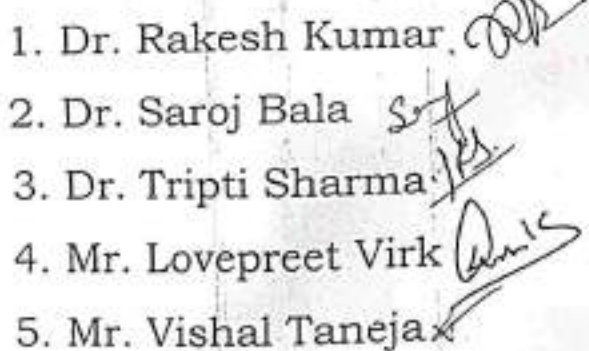 1. Dr. Rakesh Kumar.
2. Dr. Saroj Bala
3. Dr. Tripti Sharma
4. Mr. Lovepreet Virk
5. Mr. Vishal Taneja